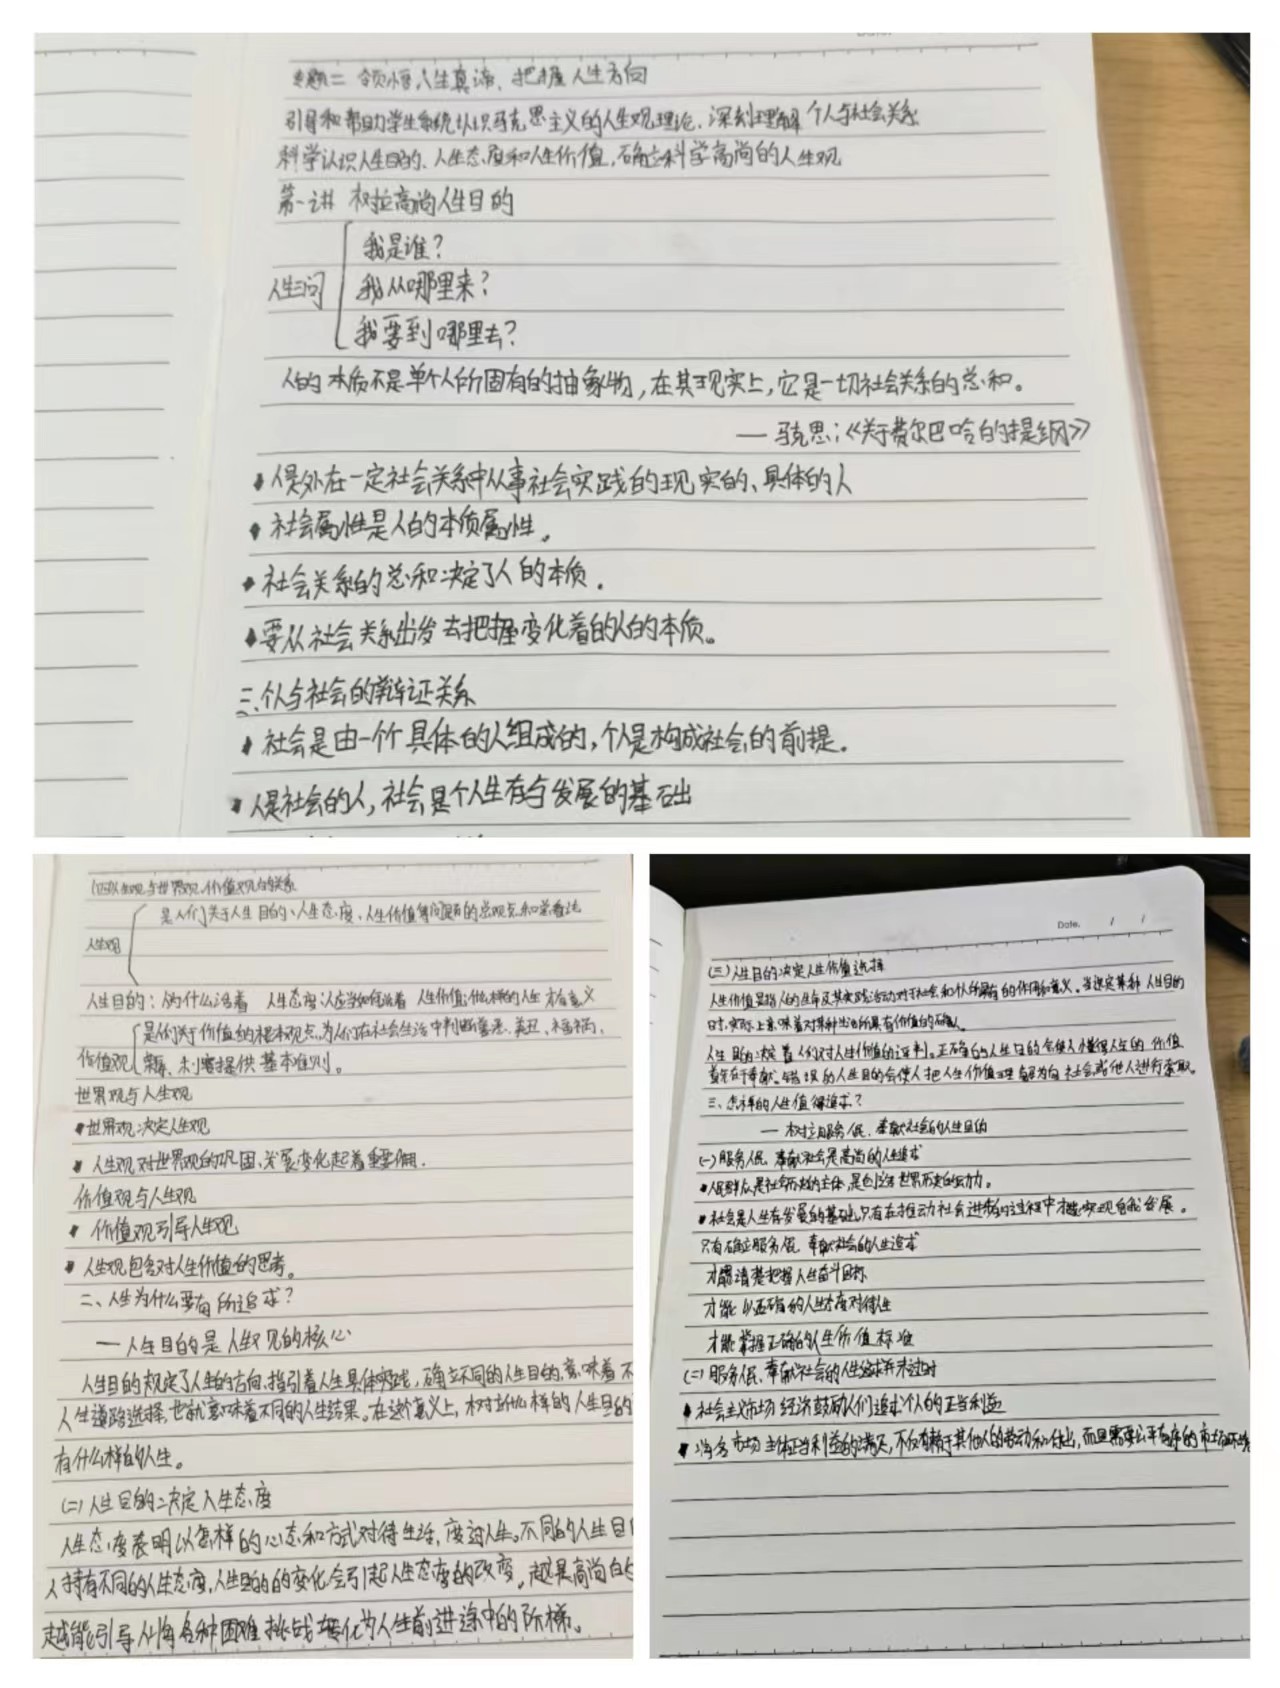 专题二 领悟人生真谛、把握人生方向
引导和帮助学生系统认识马克思主义的人生观理论、深刻理解个人与社会关系
科学认识人生目的、人生态度和人生价值,确立科学高尚的人生观
第一讲 树立高尚人生目的
人生三问
我是谁?
我从哪里来?
我要到哪里去?
人的本质不是单个人所固有的抽象物,在其现实上,它是一切社会关系的总和。
— 马克思:《关于费尔巴哈的提纲》
人是处在一定社会关系中从事社会实践的现实的、具体的人
社会属性是人的本质属性。
社会关系的总和决定了人的本质.
要从社会关系出发去把握变化着的人的本质。
三、个人与社会的辩证关系
社会是由一个个具体的人组成的,个人是构成社会的前提.
人是社会的人,社会是个人生存与发展的基础
(四)人生观与世界观、价值观的关系
是人们关于人生目的、人生态度、人生价值等问题的总观点和总看法
人生观
人生目的:人为什么活着 人生态度:人应当如何活着 人生价值:什么样的人生才有意义
是人们关于价值的根本观点,为人们在社会生活中判断善恶、美丑、福祸、
价值观
荣辱、利害提供基本准则。
世界观与人生观
世界观决定人生观
人生观对世界观的巩固、发展变化起着重要作用.
价值观与人生观
价值观引导人生观
人生观包含对人生价值的思考。
二、人生为什么要有所追求?
— 人生目的是人生观的核心
人生目的规定了人生的方向,指引着人生具体实践,确立不同的人生目的,意味着不
人生道路选择,也就意味着不同的人生结果。在这个意义上,树立什么样的人生目的
有什么样的人生。
(二)人生目的决定人生态度
人生态度表明以怎样的心态和方式对待生活,度过人生。不同的人生目
人持有不同的人生态度,人生目的的变化会引起人生态度的改变。越是高尚
越能引导人将各种困难挑战转化为人生前进途中的阶梯。
Date. / /
(三)人生目的决定人生价值选择
人生价值是指人的生命及其实践活动对于社会和个人所具有的作用和意义。当选定某种人生目的
时,实际上意味着对某种生活所具有价值的确认。
人生目的决定着人们对人生价值的评判。正确的人生目的会使人懂得人生的价值
首先在于奉献。错误的人生目的会使人把人生价值理解为向社会或他人进行索取。
三、怎样的人生值得追求?
— 树立服务人民、奉献社会的人生目的
(一)服务人民、奉献社会是高尚的人生追求
人民群众是社会历史的主体,是创造世界历史的动力。
社会是人生存发展的基础,只有在推动社会进步的过程中才能实现自我发展。
只有确立服务人民、奉献社会的人生追求
才能清楚把握人生奋斗目标
才能以正确的人生态度对待人生
才能掌握正确的人生价值标准
(二)服务人民、奉献社会的人生追求并未过时
社会主义市场经济鼓励人们追求个人的正当利益
各市场主体正当利益的满足,不仅有赖于其他人的劳动和付出,而且需要公平有序的市场环境